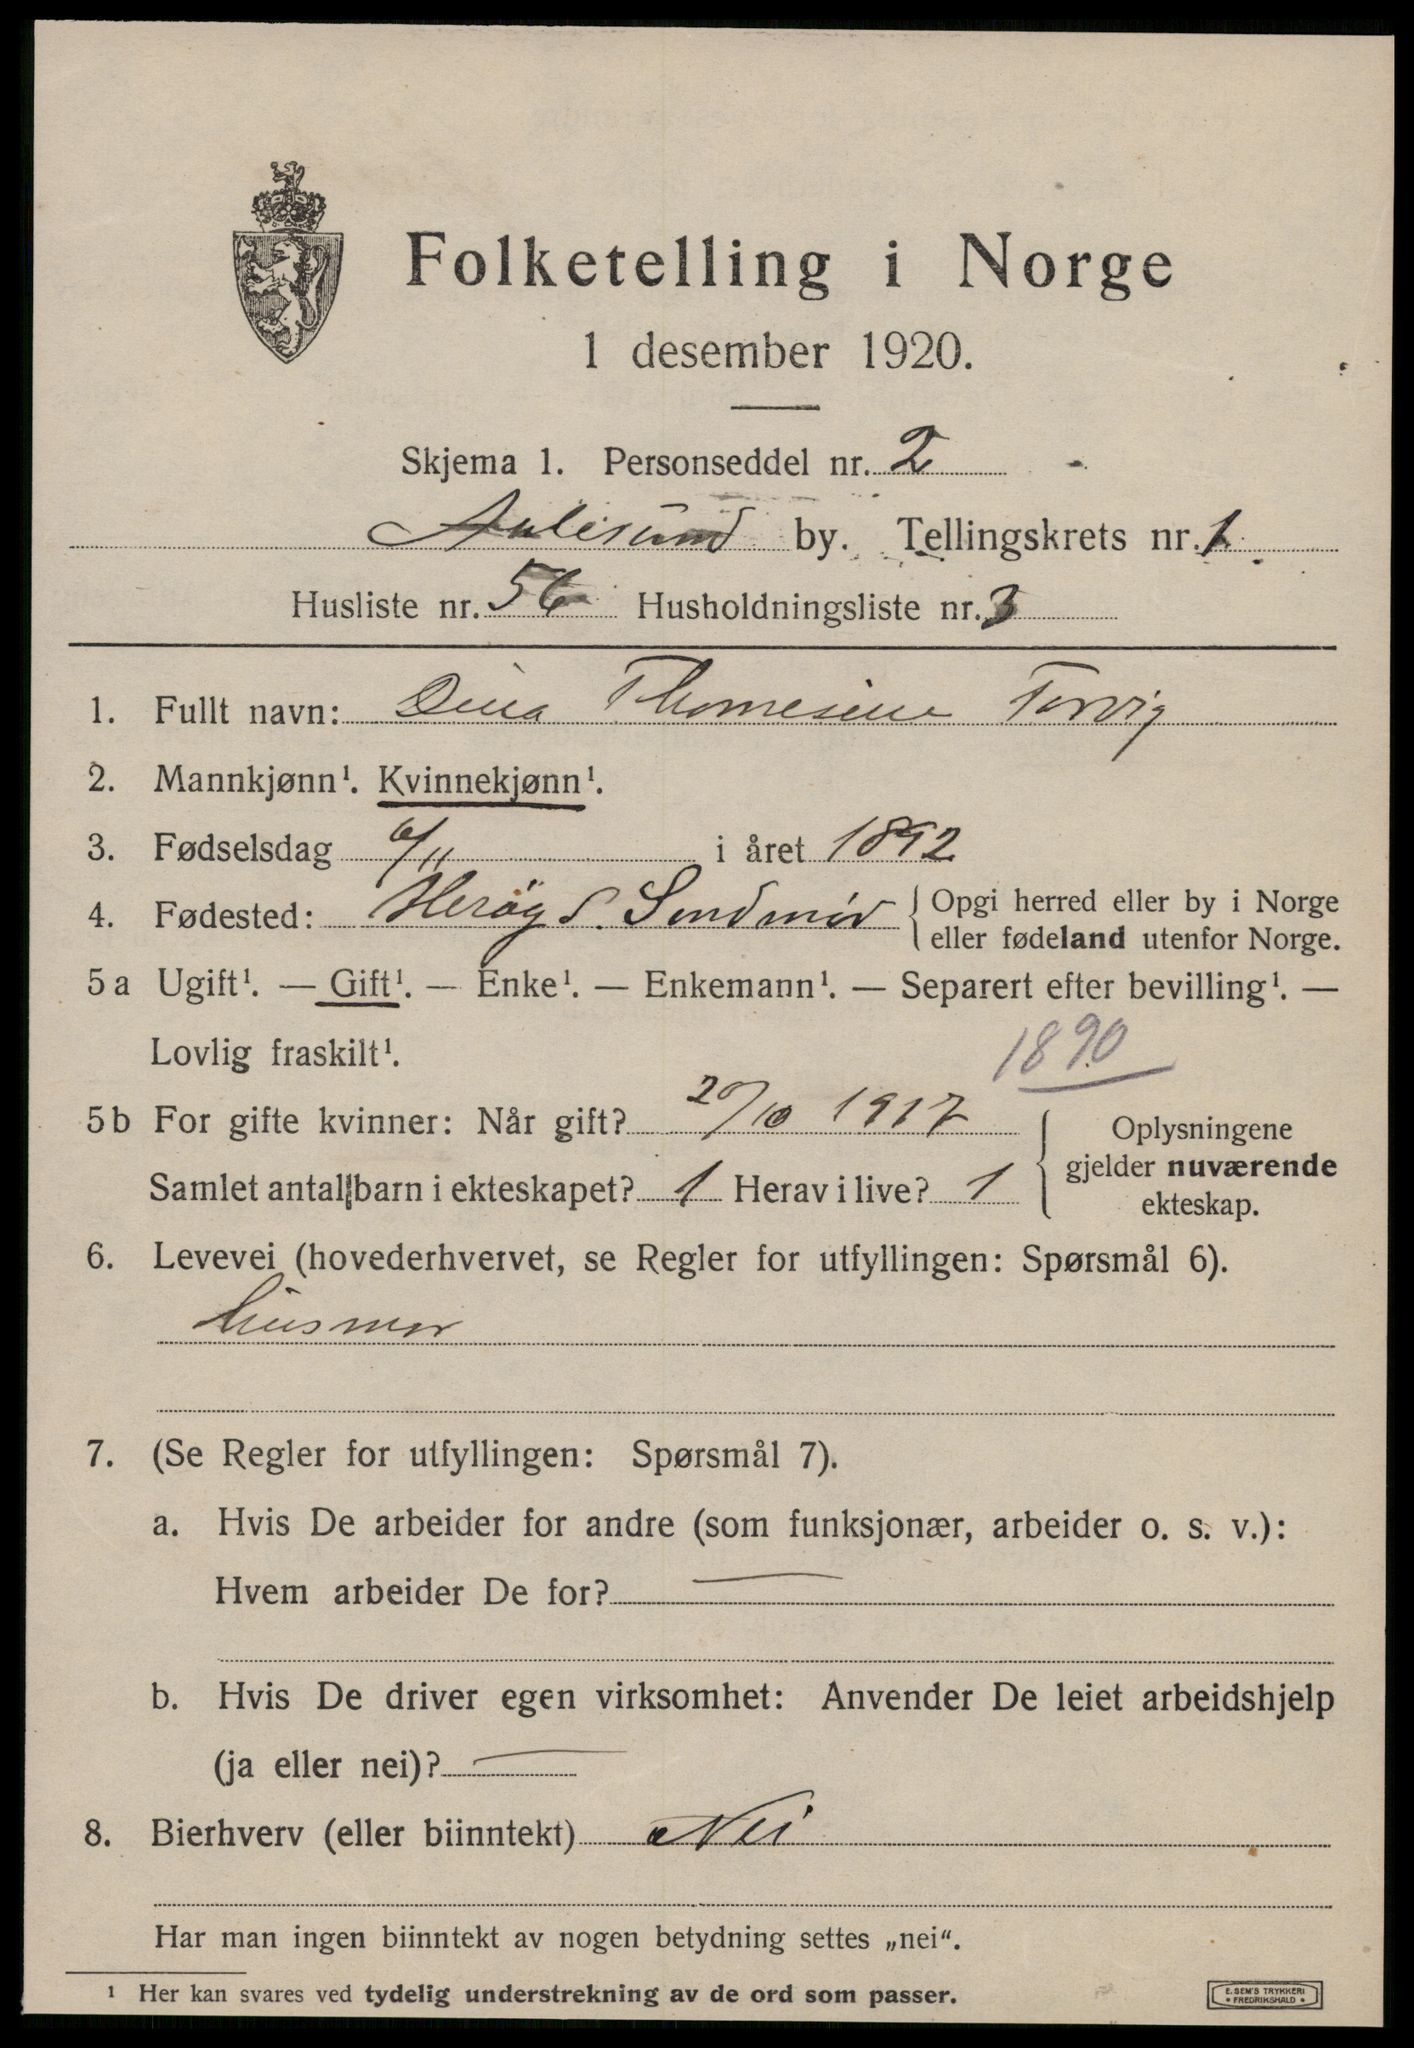 Folketelling i Norge
1 desember 1920.
Skjema 1. Personseddel nr. 2
Aalesund by. Tellingskrets nr. 1
Husliste nr. 56 Husholdningsliste nr. 3
1. Fullt navn: Dina Thomesine Torvig
2. Mannkjønn¹. Kvinnekjønn¹.
3. Fødselsdag 6/11 i året 1892
4. Fødested: Herøy S. Sondmør { Opgi herred eller by i Norge
eller fødeland utenfor Norge.
5 a Ugift¹. — Gift¹. — Enke¹. — Enkemann¹. — Separert efter bevilling¹. —
Lovlig fraskilt¹.
1890
5 b For gifte kvinner: Når gift? 20/10 1917
Samlet antal barn i ekteskapet? 1 Herav i live? 1
{ Oplysningene
gjelder nuværende
ekteskap.
6. Levevei (hovederhvervet, se Regler for utfyllingen: Spørsmål 6).
husmor
7. (Se Regler for utfyllingen: Spørsmål 7).
a. Hvis De arbeider for andre (som funksjonær, arbeider o. s. v.):
Hvem arbeider De for? —
b. Hvis De driver egen virksomhet: Anvender De leiet arbeidshjelp
(ja eller nei)? —
8. Bierhverv (eller biinntekt) Nei
Har man ingen biinntekt av nogen betydning settes „nei“.
¹ Her kan svares ved tydelig understrekning av de ord som passer.
E. SEM'S TRYKKERI
• FREDRIKSHALD •